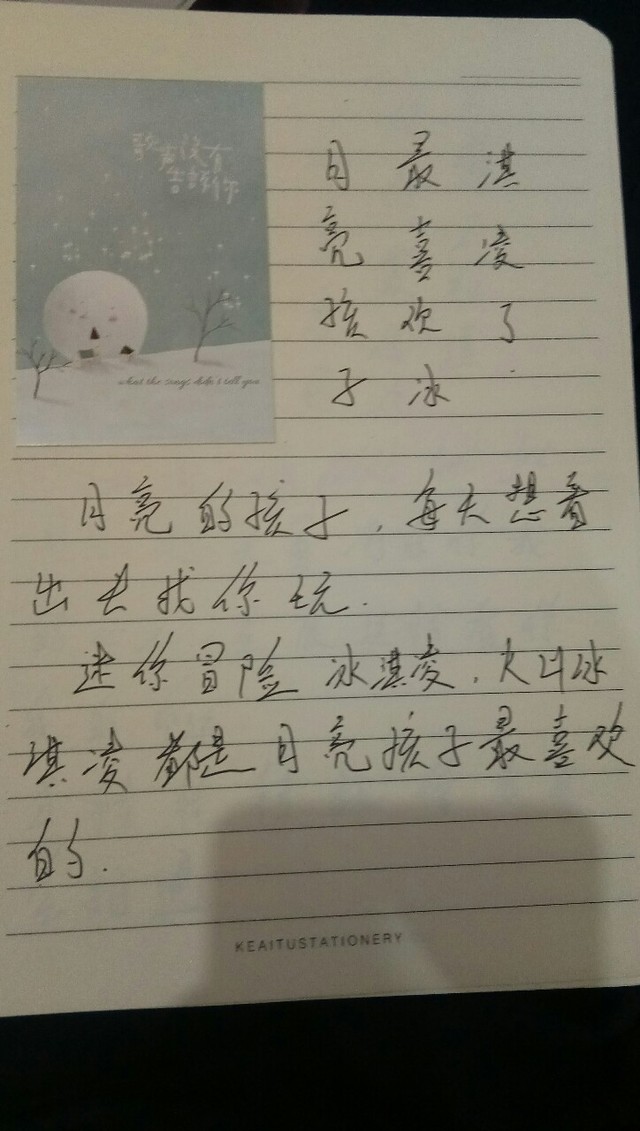 歌声没有
告訴你
what the songs didn't tell you
月最淇
亮喜凌
孩欢了
子冰
月亮的孩子，每天想着
出去找你玩.
迷你冒险冰淇凌，火斗冰
淇凌都是月亮孩子最喜欢
的.
KEAITUSTATIONERY